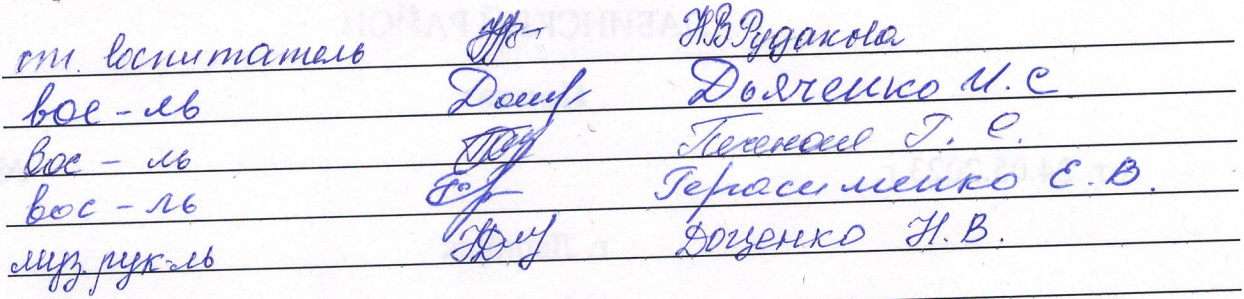 ст. воспитатель Н.В Рудакова
вос-ль Дьяченко И.С
вос-ль Г. С.
вос-ль Герасименко Е.В.
муз.рук-ль Доценко Н.В.